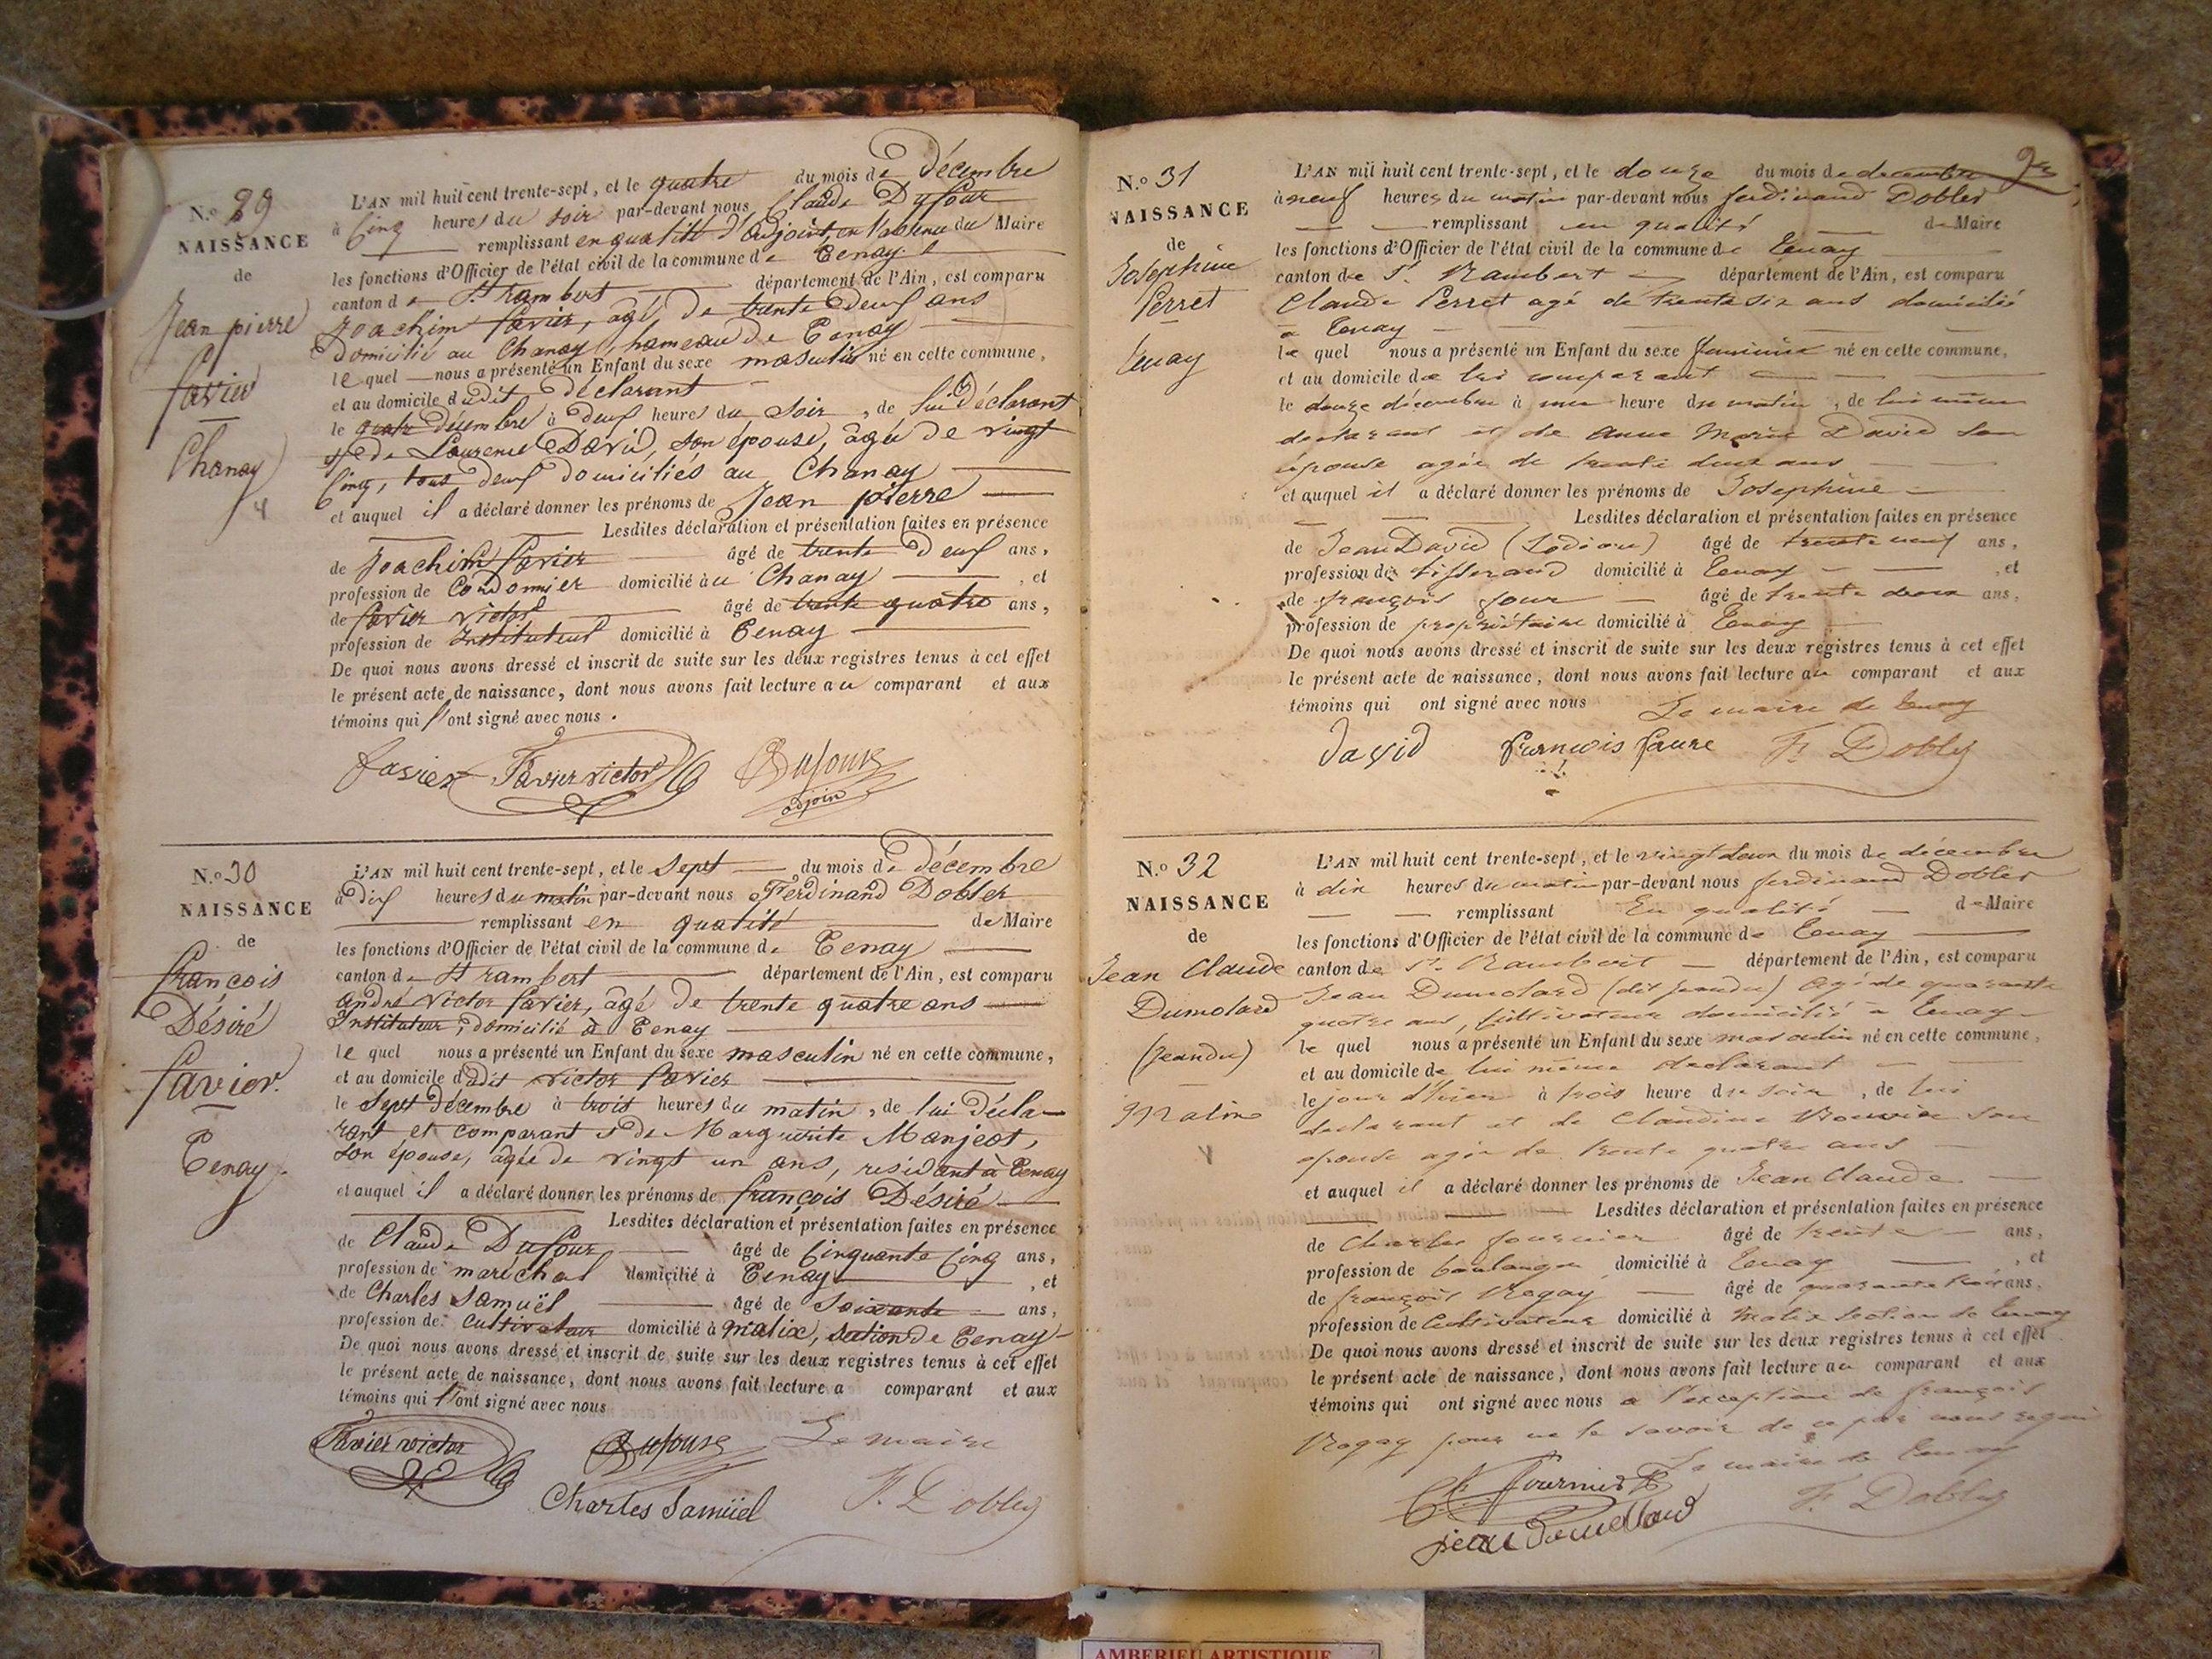 N.o 29
NAISSANCE
de
Jean pierre
favier
Chanay
4
L'AN mil huit cent trente-sept, et le quatre du mois de Décembre
à Cinq heures du soir par-devant nous Claude Dufour
remplissant en qualité d'adjoint, en l'absence du Maire
les fonctions d'Officier de l'état civil de la commune de Tenay
canton de St rambert département de l'Ain, est comparu
Joachim favier, agé, de trente Deux ans
Domicilié au Chanay, hameau de Tenay
le quel nous a présenté un Enfant du sexe masculin né en cette commune,
et au domicile dudit Déclarant
le quatre Décembre à Deux heures du soir, de lui Déclarant
et de Laurence David, son épouse, agée de vingt
Cinq, tous Deux Domiciliés au Chanay
et auquel il a déclaré donner les prénoms de Jean pierre
Lesdites déclaration et présentation faites en présence
de Joachim favier âgé de trente Deux ans,
profession de Cordonnier domicilié au Chanay, et
de favier victor âgé de trente quatre ans,
profession de Instituteur domicilié à Tenay
De quoi nous avons dressé et inscrit de suite sur les deux registres tenus à cet effet
le présent acte de naissance, dont nous avons fait lecture au comparant et aux
témoins qui l'ont signé avec nous.
favier Favier victor Dufour
adjoin
N.o 30
NAISSANCE
de
françois
Désiré
favier.
Tenay.
L'AN mil huit cent trente-sept, et le sept du mois de Décembre
à Dix heures du matin par-devant nous Ferdinand Dobler
remplissant en qualité de Maire
les fonctions d'Officier de l'état civil de la commune de Tenay
canton de St rambert département de l'Ain, est comparu
André victor favier, agé de trente quatre ans
Instituteur, domicilié à Tenay
le quel nous a présenté un Enfant du sexe masculin né en cette commune,
et au domicile dudit victor favier
le sept décembre à trois heures du matin, de lui décla-
rant et comparant et de Marguerite Manjeot,
son épouse, agée de vingt un ans, residant à Tenay
et auquel il a déclaré donner les prénoms de françois Désiré
Lesdites déclaration et présentation faites en présence
de Claude Dufour âgé de Cinquante Cinq ans,
profession de maréchal domicilié à Tenay, et
de Charles Samuël âgé de Soixante ans,
profession de Cultivateur domicilié à malix, section de Tenay
De quoi nous avons dressé et inscrit de suite sur les deux registres tenus à cet effet
le présent acte de naissance, dont nous avons fait lecture a comparant et aux
témoins qui l'ont signé avec nous
Favier victor Dufour Le maire
Charles Samüel F. Dobler
N.o 31
NAISSANCE
de
Josephine
Perret
Tenay
L'AN mil huit cent trente-sept, et le douze du mois de decembre
à neuf heures du matin par-devant nous ferdinand Dobler
remplissant en qualité de Maire
les fonctions d'Officier de l'état civil de la commune de Tenay
canton de St. Rambert département de l'Ain, est comparu
Claude Perret agé de trente six ans domicilié
a Tenay
le quel nous a présenté un Enfant du sexe feminin né en cette commune,
et au domicile de lui comparant
le douze décembre à une heure du matin, de lui même
declarant et de Anne Marie David son
épouse agée de trente deux ans
et auquel il a déclaré donner les prénoms de Josephine
Lesdites déclaration et présentation faites en présence
de Jean David âgé de trente neuf ans,
profession de tisserand domicilié à Tenay, et
de françois four âgé de trente deux ans,
profession de propriétaire domicilié à Tenay
De quoi nous avons dressé et inscrit de suite sur les deux registres tenus à cet effet
le présent acte de naissance, dont nous avons fait lecture au comparant et aux
témoins qui ont signé avec nous Le maire de Tenay
David faure F. Dobler
N.o 32
NAISSANCE
de
Jean Claude
Dumolard
(jeandu)
L'AN mil huit cent trente-sept, et le vingt deux du mois de décembre
à dix heures du matin par-devant nous ferdinand Dobler
remplissant En qualité de Maire
les fonctions d'Officier de l'état civil de la commune de Tenay
canton de St. Rambert département de l'Ain, est comparu
Jean Dumolard (dit jeandu) Agé de quarante
quatre ans, Cultivateur domicilié a Tenay
le quel nous a présenté un Enfant du sexe masculin né en cette commune,
et au domicile de lui même declarant
le jour d'hier à trois heure du soir, de lui
declarant et de Claudine Bouvier son
epouse agée de trente quatre ans
et auquel il a déclaré donner les prénoms de Jean Claude
Lesdites déclaration et présentation faites en présence
de Charles fournier âgé de trente ans,
profession de boulanger domicilié à Tenay, et
de françois Rogay âgé de quarante trois ans,
profession de Cultivateur domicilié à Malix section de Tenay
De quoi nous avons dressé et inscrit de suite sur les deux registres tenus à cet effet
le présent acte de naissance, dont nous avons fait lecture au comparant et aux
témoins qui ont signé avec nous a l'exception de françois
Rogay pour ne le savoir de ce par nous requis
Le maire de Tenay
fournier F. Dobler
jean
AMBERIEU ARTISTIQUE